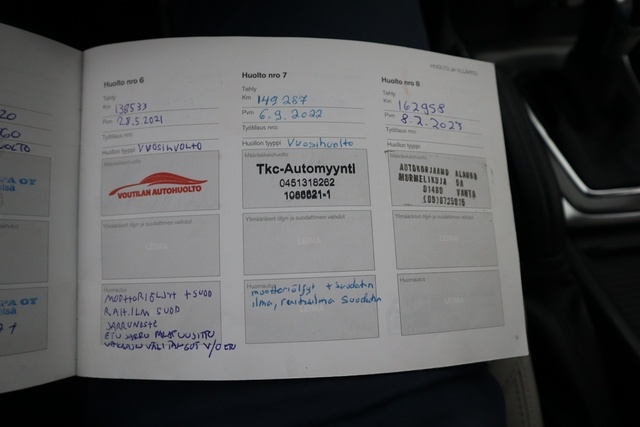 HUOLTO JA YLLÄPITO
Huolto nro 6
Tehty
Km 138533
Pvm 28.5.2021
Työtilaus nro
Huollon tyyppi VUOSIHUOLTO
Määräaikaishuolto
VOUTILAN AUTOHUOLTO
Ylimääräiset öljyn ja suodattimen vaihdot
LEIMA
Huomautus
MOOTTORIÖLJYT + SUOD
RAIT.ILM SUOD
JARRUNESTE
ETU JARRU PALAT UUSITTU
Huolto nro 7
Tehty
Km 149 287
Pvm 6.9.2022
Työtilaus nro
Huollon tyyppi Vuosihuolto
Määräaikaishuolto
Tkc-Automyynti
0451318262
Ylimääräiset öljyn ja suodattimen vaihdot
LEIMA
Huomautus
moottoriöljyt + suodatin
ilma, raitisilma suodatin
Huolto nro 8
Tehty
Km 162958
Pvm 8.2.2023
Työtilaus nro
Huollon tyyppi
Määräaikaishuolto
AUTOKORJAAMO ALANKO
MURMELIKUJA 5A
01480 VANTA
Ylimääräiset öljyn ja suodattimen vaihdot
LEIMA
Huomautus